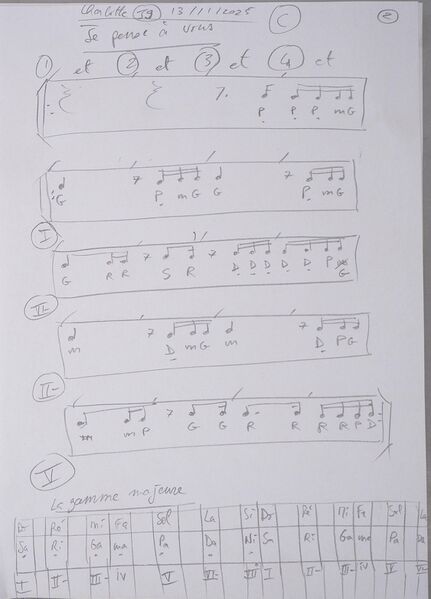 Charlotte 39 13/11/2025 C 2
Je pense à vous
1 et 2 et 3 et 4 et
P P P m G
G P m G G P m G
I
G R R S R D D D D D P G
II-
m D m G m D P G
II-
m P G G R R R R P D
V
La gamme majeure
Do Ré Mi Fa Sol La Si Do Ré Mi Fa Sol La
Sa Ri Ga ma Pa Da Ni Sa Ri Ga ma Pa Da
I II- III- IV V VI- VII I II- III- IV V VI-